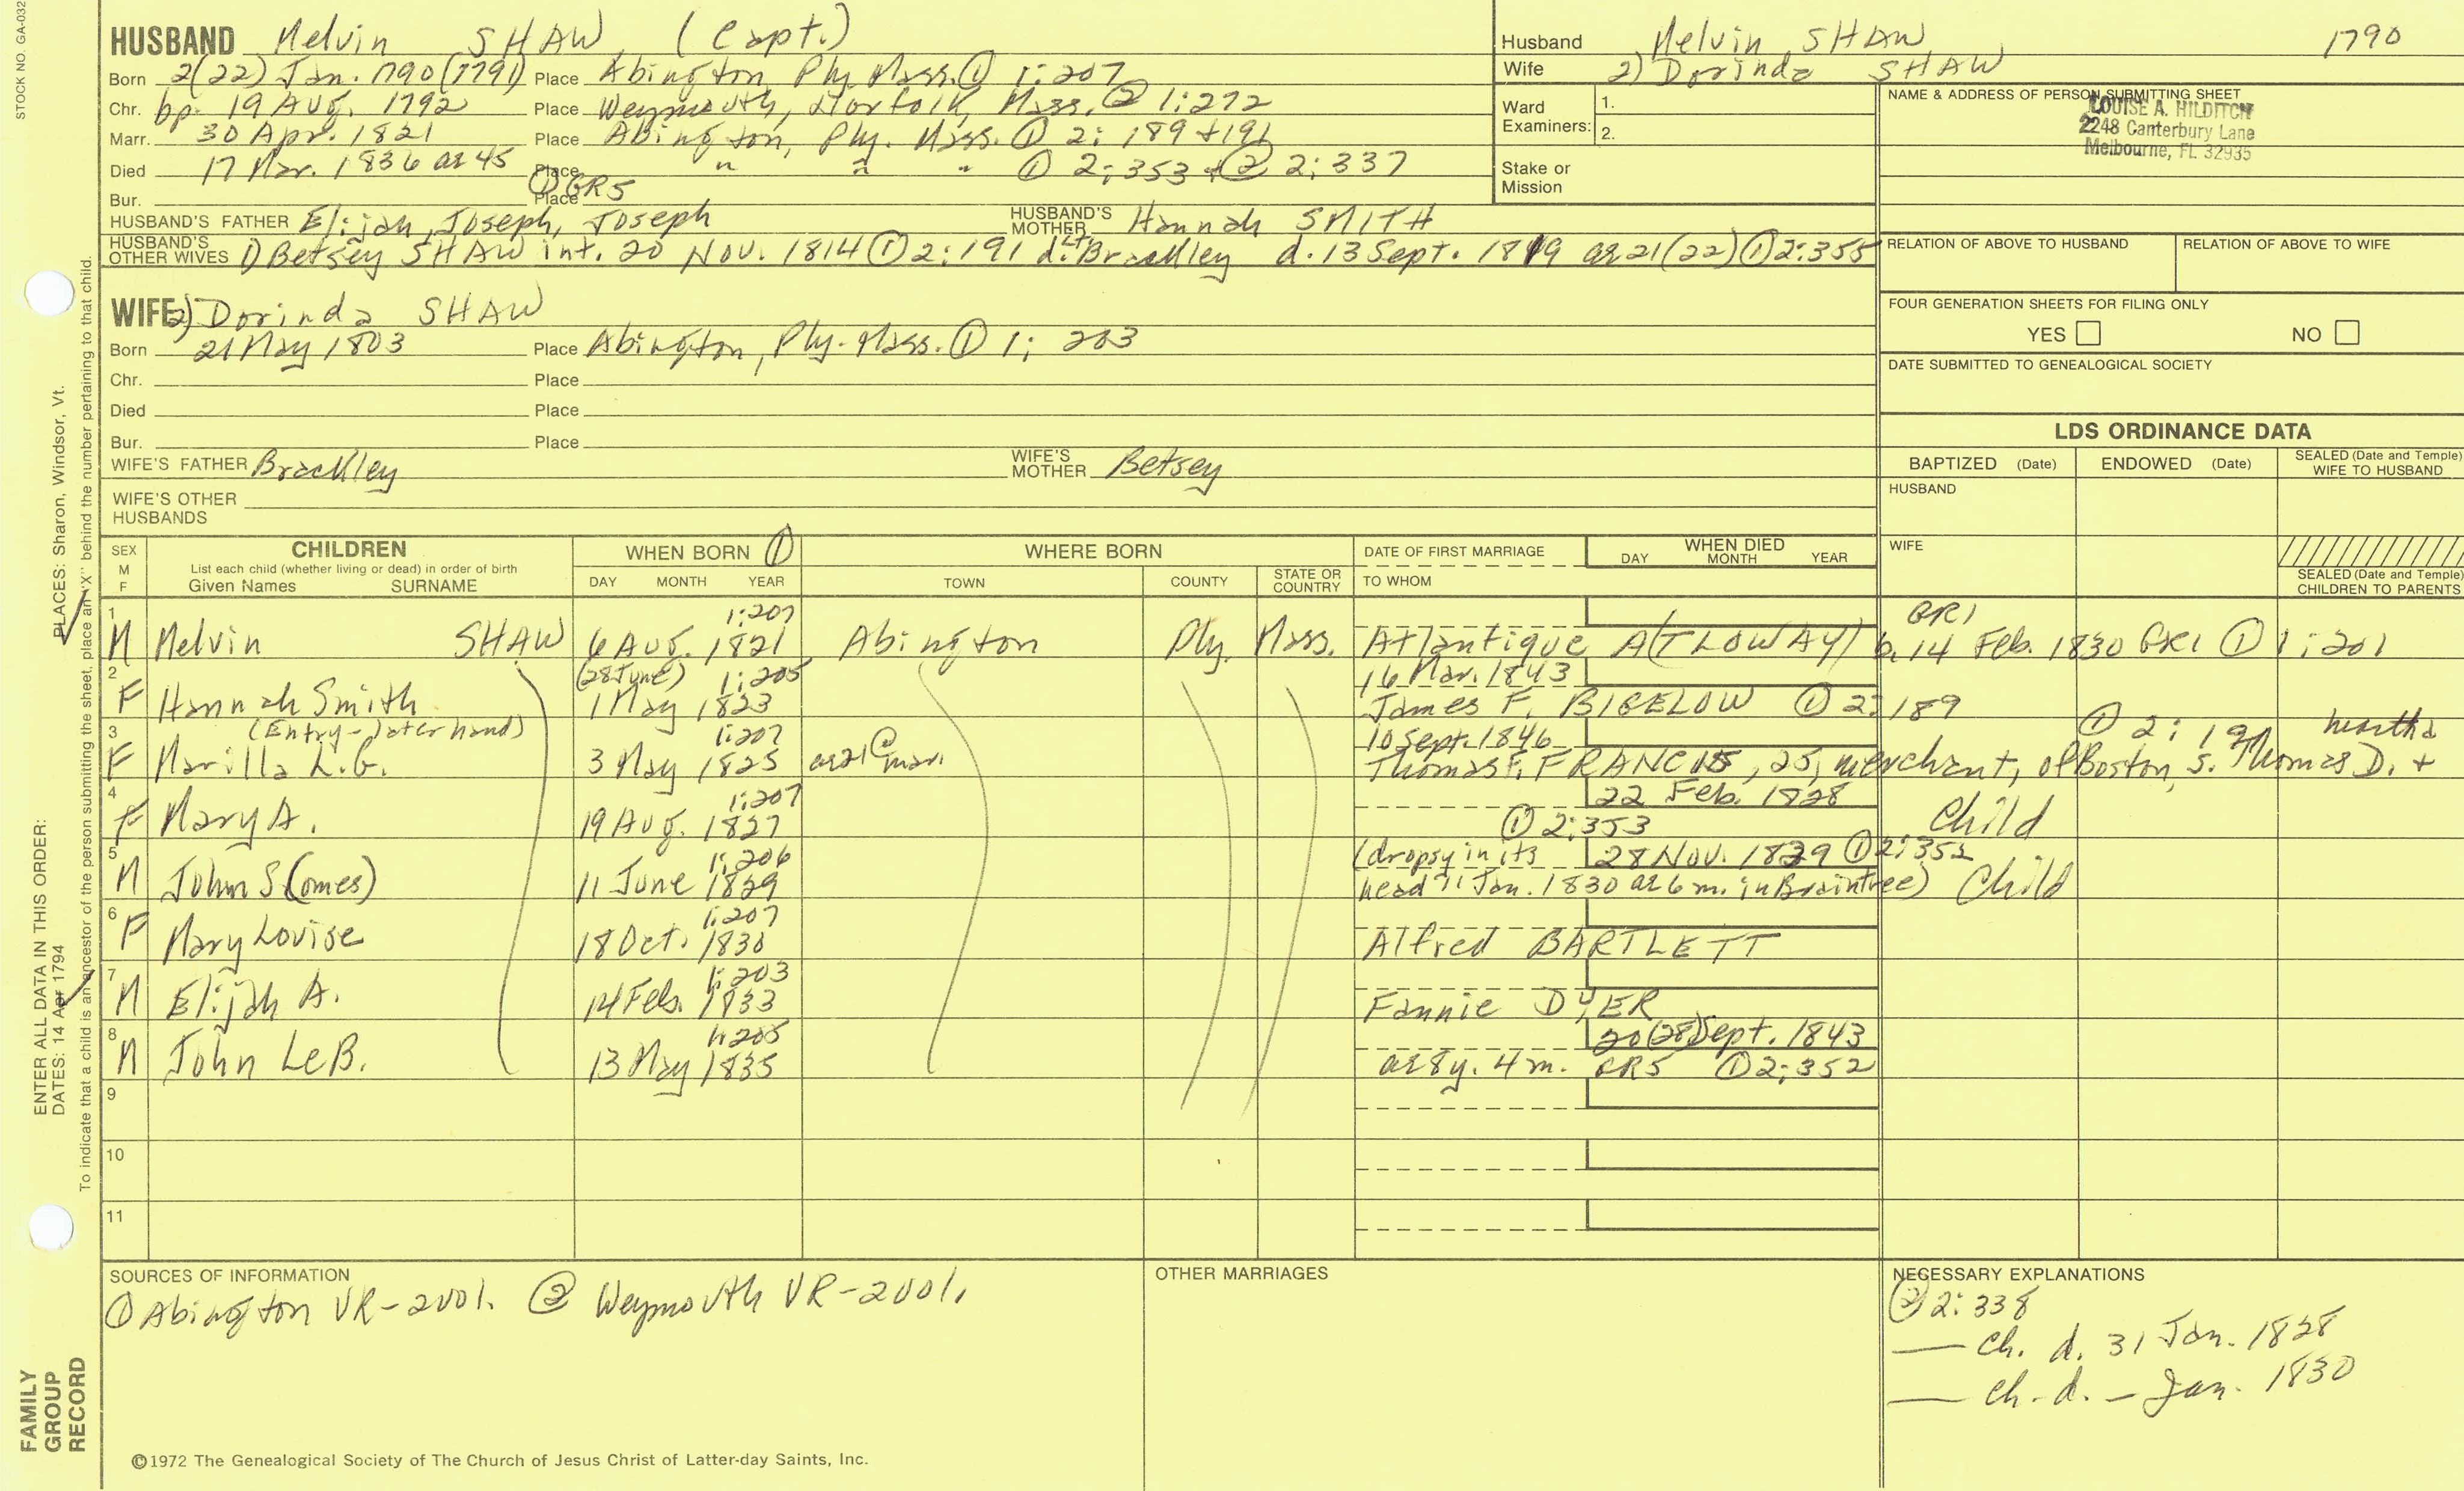 STOCK NO. GA-032
HUSBAND Melvin SHAW (Capt.)
Born 2(22) Jan. 1790 (1791) Place Abington, Ply. Mass. ① 1:207
Chr. bp. 19 Aug. 1792 Place Weymouth, Norfolk, Mass. ② 1:272
Marr. 30 Apr. 1821 Place Abington, Ply. Mass. ① 2: 189 + 191
Died 17 Mar. 1836 ae 45 Place " " " ① 2:353 + ② 2:337
Bur. Place ① GR5
HUSBAND'S FATHER Elijah, Joseph, Joseph HUSBAND'S MOTHER Hannah SMITH
HUSBAND'S OTHER WIVES 1) Betsey SHAW int. 20 Nov. 1814 ① 2:191 d. Lt. Brackley d. 13 Sept. 1819 ae 21(22) ① 2:355
Husband Melvin SHAW 1790
Wife 2) Dorinda SHAW
Ward Examiners: 1.
2.
Stake or Mission
NAME & ADDRESS OF PERSON SUBMITTING SHEET
LOUISE A. HILDITCH
2248 Canterbury Lane
Melbourne, FL 32935
RELATION OF ABOVE TO HUSBAND RELATION OF ABOVE TO WIFE
FOUR GENERATION SHEETS FOR FILING ONLY
YES NO
DATE SUBMITTED TO GENEALOGICAL SOCIETY
WIFE 2) Dorinda SHAW
Born 21 May 1803 Place Abington, Ply. Mass. ① 1: 203
Chr. Place
Died Place
Bur. Place
WIFE'S FATHER Brackley WIFE'S MOTHER Betsey
WIFE'S OTHER HUSBANDS
LDS ORDINANCE DATA
BAPTIZED (Date) ENDOWED (Date) SEALED (Date and Temple) WIFE TO HUSBAND
HUSBAND
WIFE
SEALED (Date and Temple) CHILDREN TO PARENTS
SEX M F CHILDREN List each child (whether living or dead) in order of birth Given Names SURNAME
WHEN BORN ① DAY MONTH YEAR
WHERE BORN TOWN COUNTY STATE OR COUNTRY
DATE OF FIRST MARRIAGE TO WHOM
WHEN DIED DAY MONTH YEAR
1 1:207 GR1
M Melvin SHAW 6 Aug. 1821 Abington Ply. Mass. Atlantique A(TLOWAY) b. 14 Feb. 1830 GR1 ① 1:201
2 (28 June) 1:205 16 Mar. 1843
F Hannah Smith 1 May 1823 James F. BIGELOW ① 2:189
(Entry-later hand)
3 1:207 10 Sept. 1846 ① 2: 190 Martha
F Marilla L.G. 3 May 1825 ae 21 @ mar. Thomas F. FRANCIS, 25, merchant, of Boston, s. Thomas D. +
4 1:207 22 Feb. 1828
F Mary A. 19 Aug. 1827 ① 2:353 Child
5 1:206 (dropsy in its 28 Nov. 1829 ① 2:352
M John S(omes) 11 June 1829 head 11 Jan. 1830 ae 6 m. in Braintree) Child
6 1:207
F Mary Louise 18 Oct. 1830 Alfred BARTLETT
7 1:203
M Elijah A. 14 Feb. 1833 Fannie DYER
8 1:205 20(28)Sept. 1843
M John LeB. 13 May 1835 ae 8 y. 4 m. GR5 ① 2:352
9
10
11
SOURCES OF INFORMATION
① Abington VR-2vol. ② Weymouth VR-2vol.
OTHER MARRIAGES
NECESSARY EXPLANATIONS
② 2:338
— Ch. d. 31 Jan. 1828
— Ch. d. – Jan. 1830
©1972 The Genealogical Society of The Church of Jesus Christ of Latter-day Saints, Inc.
FAMILY GROUP RECORD
ENTER ALL DATA IN THIS ORDER:
DATES: 14 Apr 1794
PLACES: Sharon, Windsor, Vt.
To indicate that a child is an ancestor of the person submitting the sheet, place an "X" behind the number pertaining to that child.